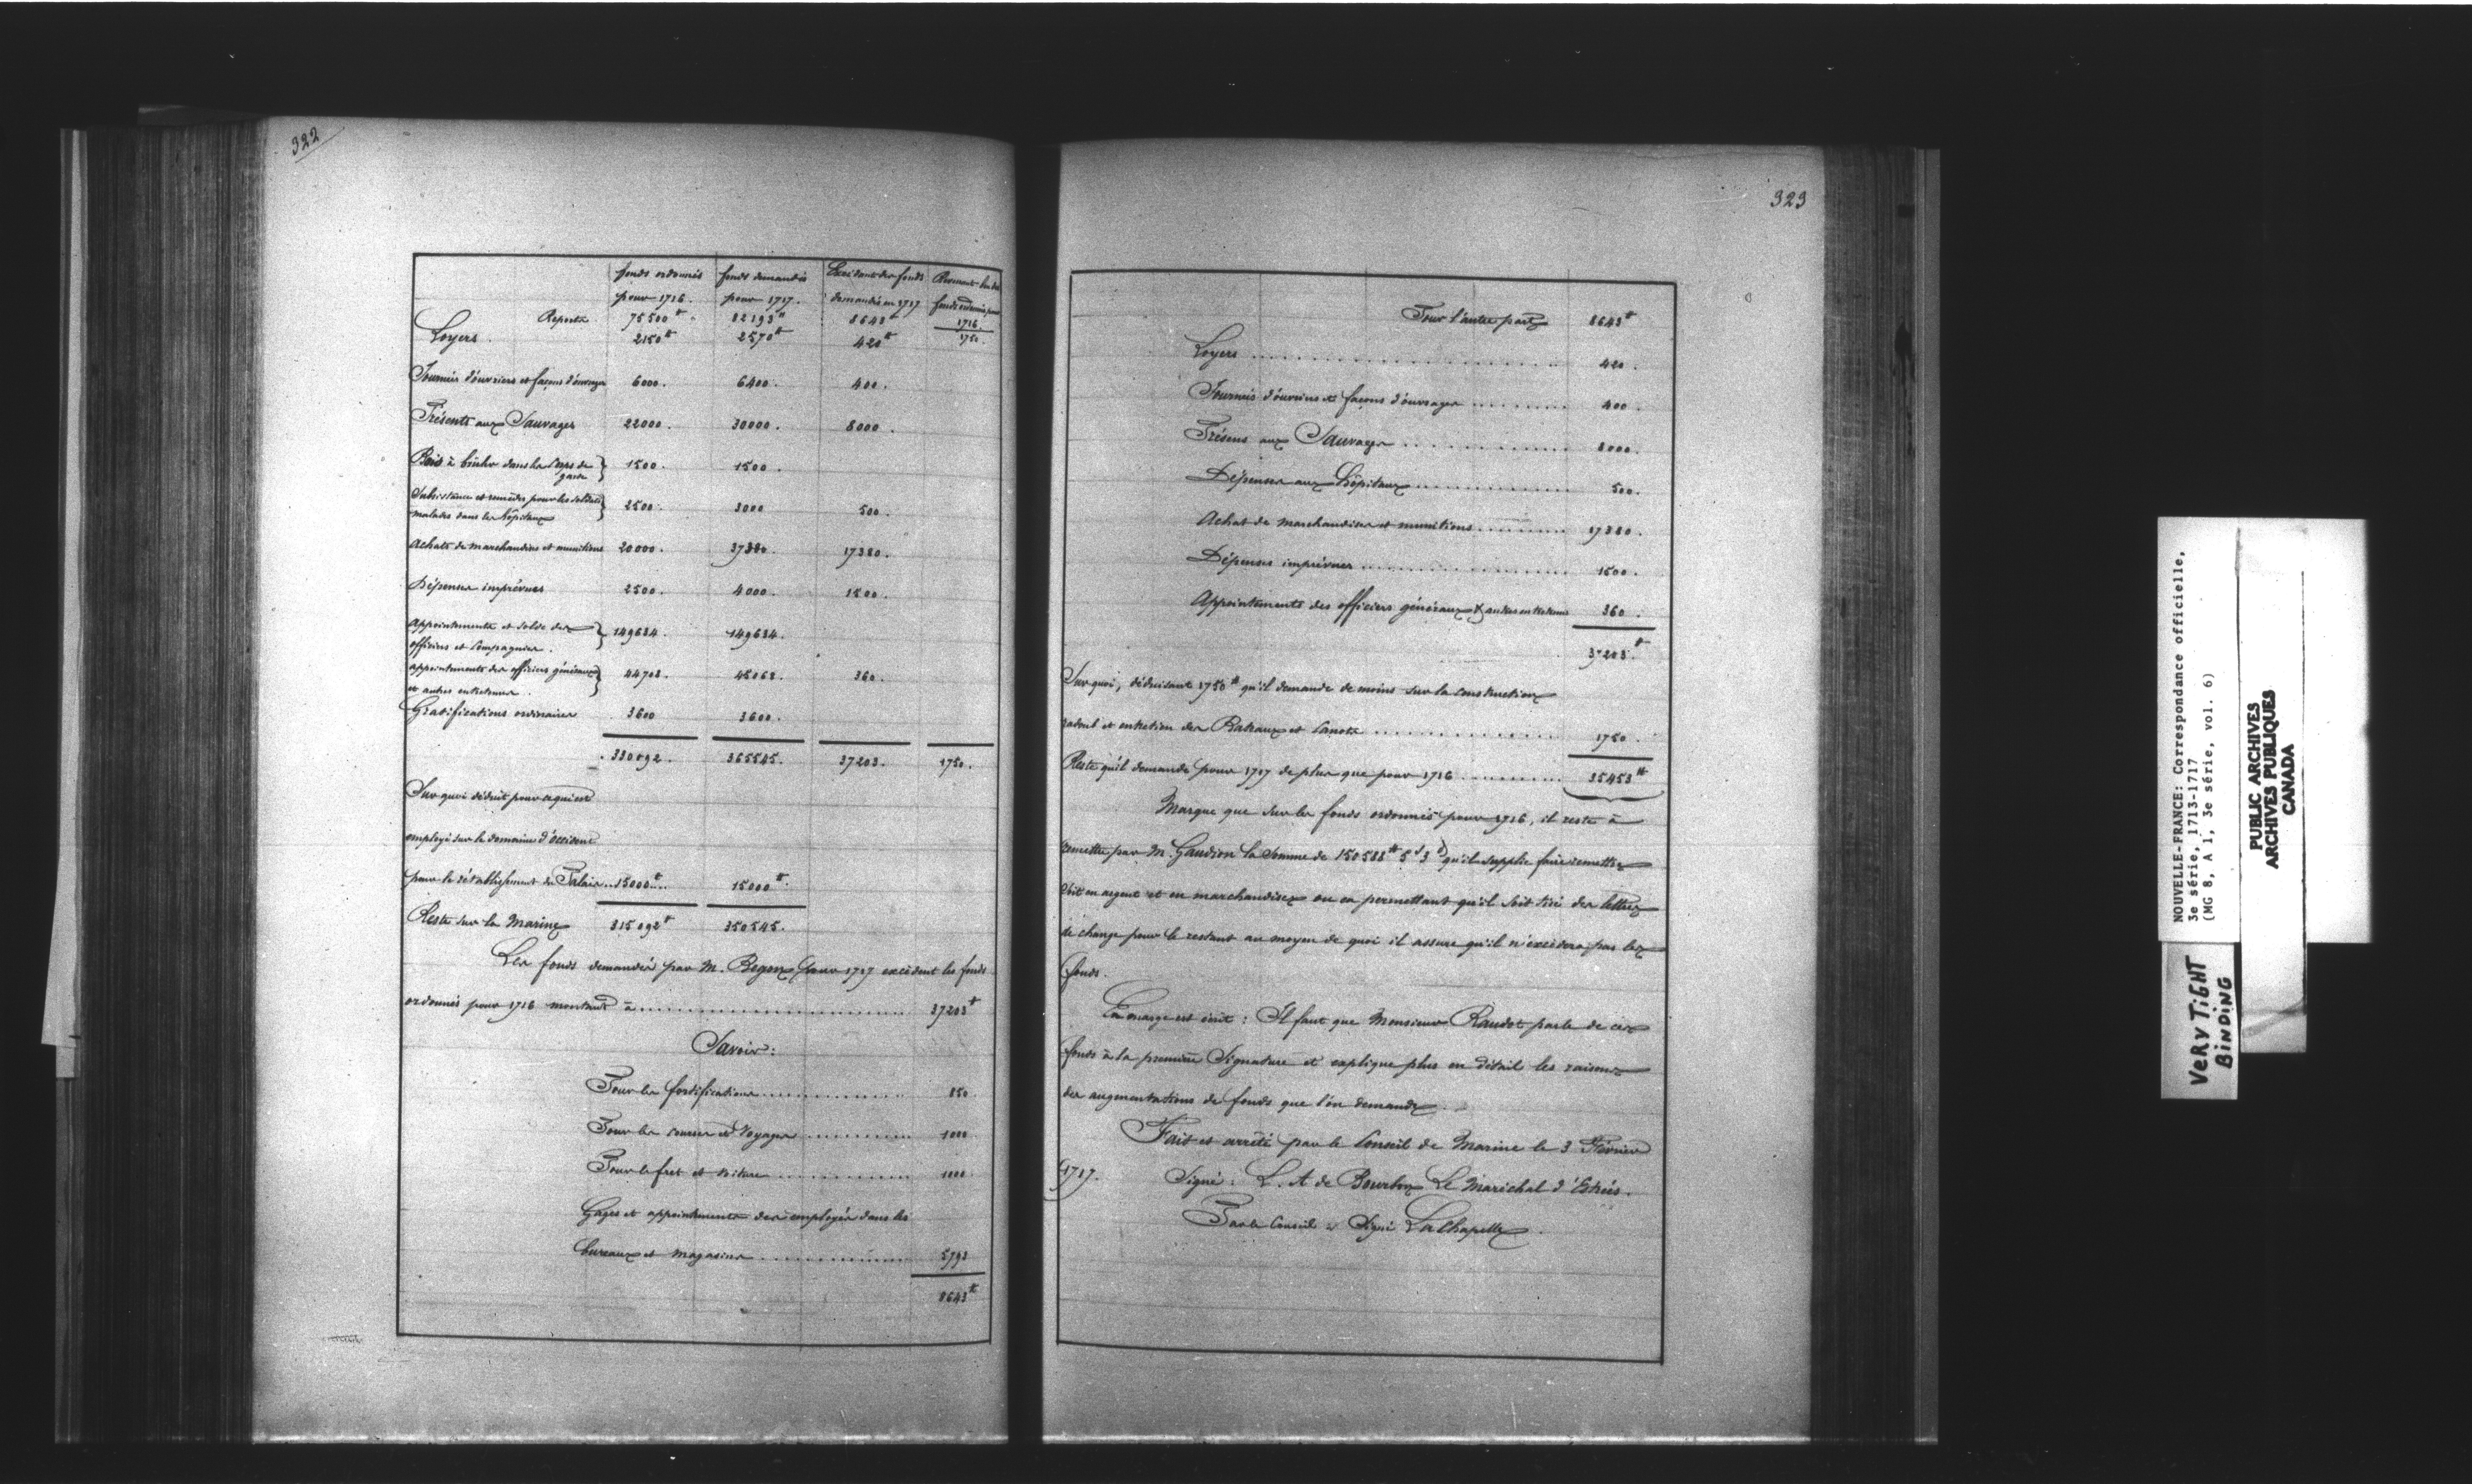 322
fonds ordonnés pour 1716. fonds demandés pour 1717. Excédent des fonds demandés en 1717 fonds ordonnés pour 1716.
Reporté 75500# 82193# 8643# 1750.
Loyers. 2150# 2570# 420#
Journées d'ouvriers et façons d'ouvrages 6000. 6400. 400.
Présents aux Sauvages 22000. 30000. 8000.
Bois à brûler dans les Corps de garde } 1500. 1500.
Subsistance et remèdes pour les soldats malades dans les hôpitaux } 2500. 3000 500.
Achats de marchandises et munitions 20000. 37380. 17380.
Dépenses imprévues 2500. 4000. 1500.
Appointements et solde des officiers et Compagnies. } 149634. 149634.
appointements des officiers généraux et autres entretenus. } 44708. 45068. 360.
Gratifications ordinaires 3600 3600.
330092. 365545. 37203. 1750.
Sur quoi déduit pour ce qui est
employé sur le domaine d'occident
pour le rétablissement du Palais.. 15000#... 15000#.
Reste sur la Marine 315092# 350545.
Les fonds demandés par M. Begon pour 1717 excèdent les fonds
ordonnés pour 1716 montant à .......... 37203#
Savoir:
Pour les fortifications .......... 850.
Pour les courses et Voyages .......... 1000
Pour le fret et voiture .......... 1000
Gages et appointements des employés dans les
bureaux et magasins .......... 5793
8643#
323
Pour l'autre part 8643#
Loyers .......... 420.
Journées d'ouvriers et façons d'ouvrages .......... 400.
Présens aux Sauvages .......... 8000.
Dépenses aux hôpitaux .......... 500.
Achat de marchandises et munitions .......... 17380.
Dépenses imprévues .......... 1500.
Appointements des officiers généraux & autres entretenus 360.
37203.#
Sur quoi, déduisant 1750# qu'il demande de moins sur la construction
radoub et entretien des Bateaux et Canots .......... 1750.
Reste qu'il demande pour 1717 de plus que pour 1716 .......... 35453#
Marque que sur les fonds ordonnés pour 1716, il reste à
remettre par M. Gaudion la Somme de 150588# 5s 3d qu'il supplie faire remettre
soit en argent et en marchandises ou en permettant qu'il soit tiré des lettres
de change pour le restant au moyen de quoi il assure qu'il n'excédera pas les
fonds.
En marge est écrit : Il faut que Monsieur Raudot parle de ces
fonds à la première Signature et explique plus en détail les raisons
des augmentations de fonds que l'on demande.
Fait et arrêté par le Conseil de Marine le 3 Février
1717. Signé : L. A de Bourbon Le Maréchal d'Estrées.
Par le Conseil : Signé LaChapelle.
NOUVELLE-FRANCE: Correspondance officielle,
3e série, 1713-1717
(MG 8, A 1, 3e série, vol. 6)
PUBLIC ARCHIVES
ARCHIVES PUBLIQUES
CANADA
VERY TIGHT
BINDING